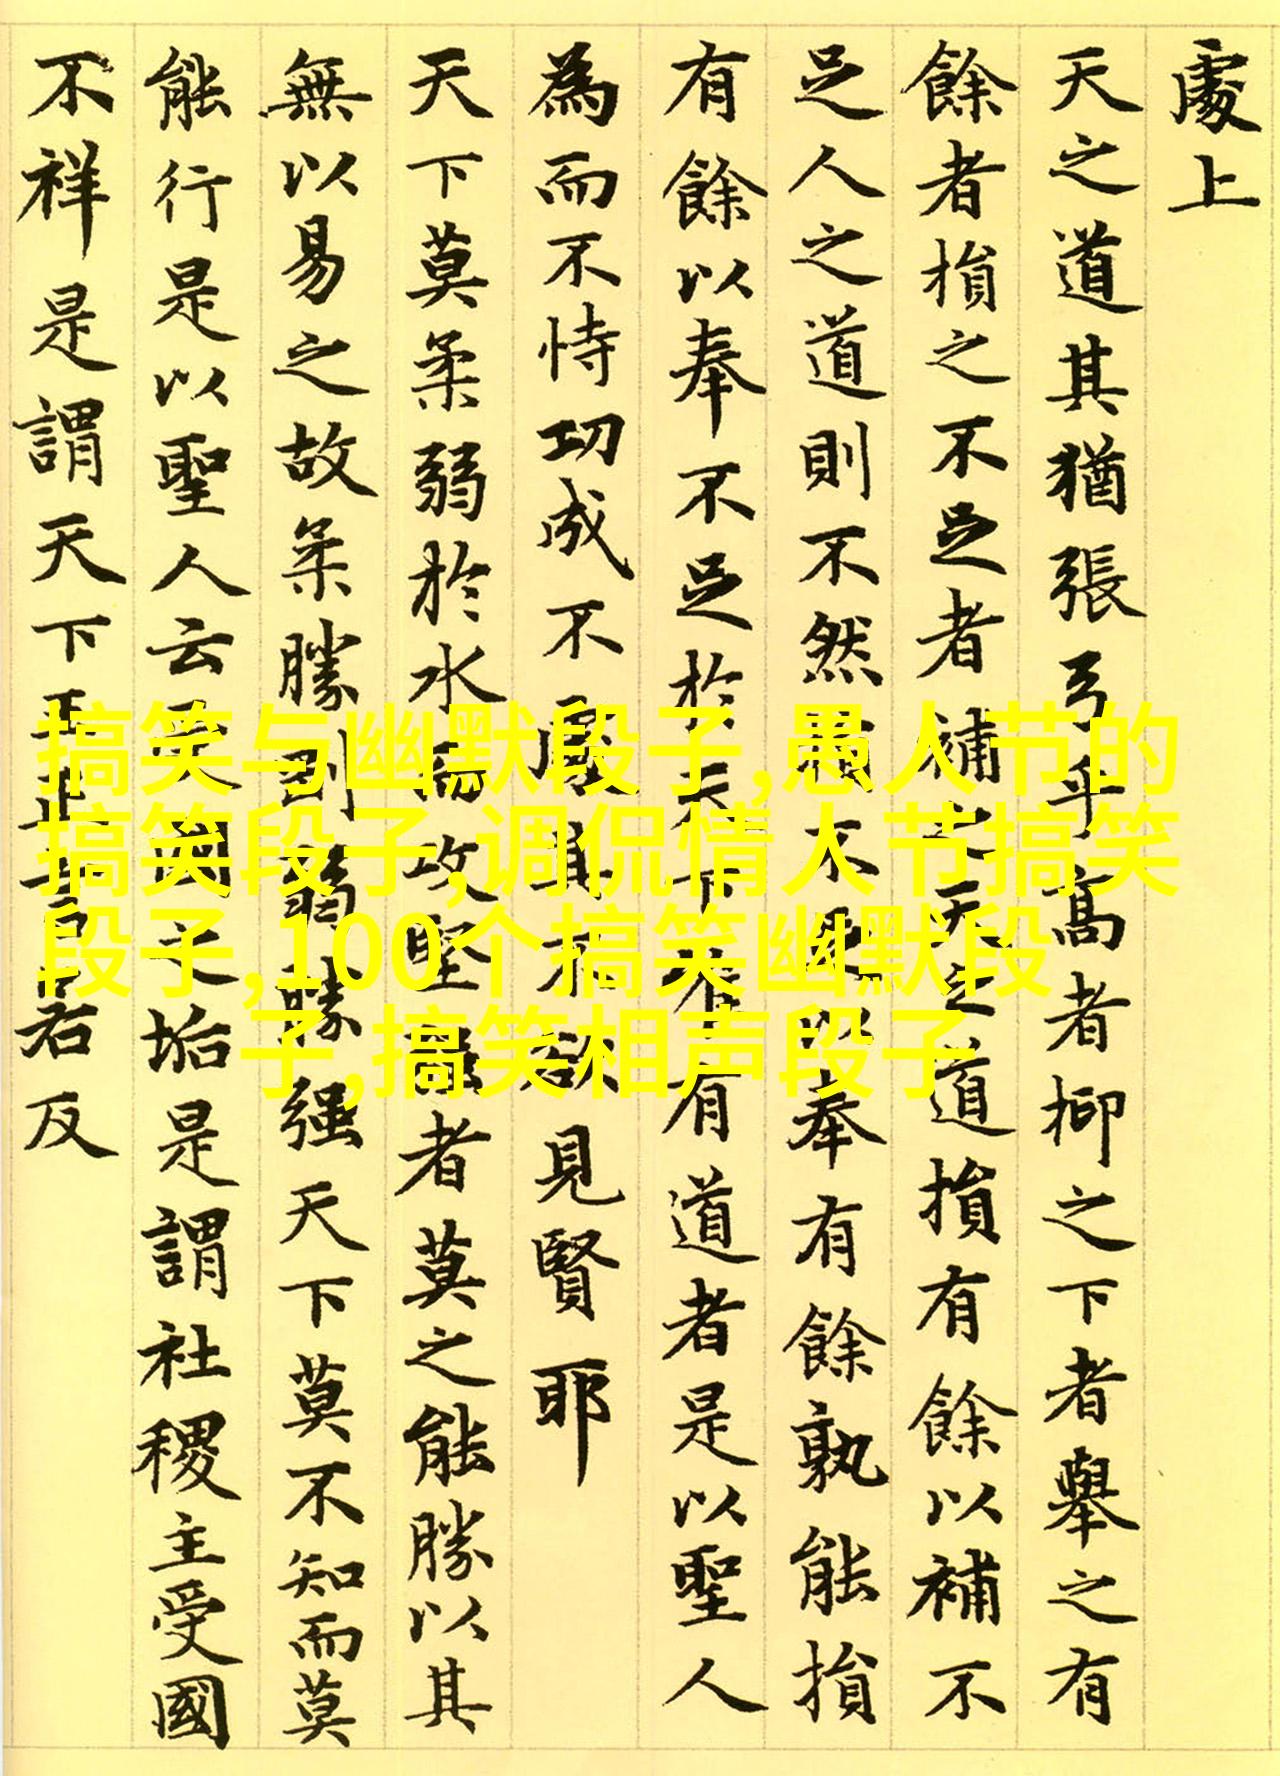 處上
天之道其猶張弓乎高者抑之下者舉之有
餘者損之不足者補之天之道損有餘以補不
足人之道則不然損不足以奉有餘孰能損
有餘以奉不足於天下有道者是以聖人
為而不恃功成不處其不欲見賢耶
天下莫柔弱於水而攻堅强者莫之能勝以其
無以易之故柔勝剛弱勝强天下莫不知而莫
能行是以聖人云受國之垢是謂社稷主受國
不祥是謂天下王正言若反
搞笑与幽默段子,愚人节的
搞笑段子,调侃情人节搞笑
段子,100个搞笑幽默段
子,搞笑相声段子